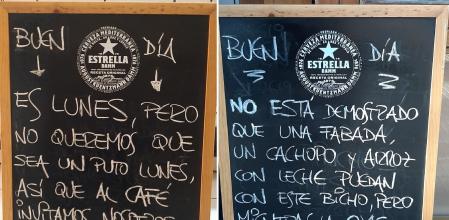 BUEN DÍA
CERVEZA MEDITERRÁNEA
ESTRELLA
DAMM
RECETA ORIGINAL
ES LUNES, PERO
NO QUEREMOS QUE
SEA UN PUTO LUNES,
ASÍ QUE AL CAFÉ
INVITAMOS NOSOTROS
BUEN DÍA
CERVEZA MEDITERRÁNEA
ESTRELLA
DAMM
RECETA ORIGINAL
NO ESTÁ DEMOSTRADO
QUE UNA FABADA,
UN CACHOPO Y ARROZ
CON LECHE PUEDAN
CON ESTE BICHO, PERO